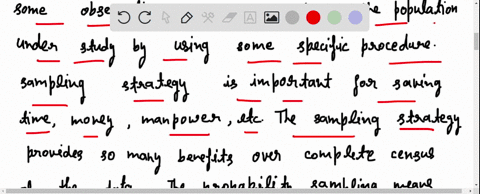 some population
under study by using some specific procedure.
sampling strategy is important for saving
time, money, manpower, etc The sampling strategy
provides so many benefits over complete census
the data. The probability sampling means